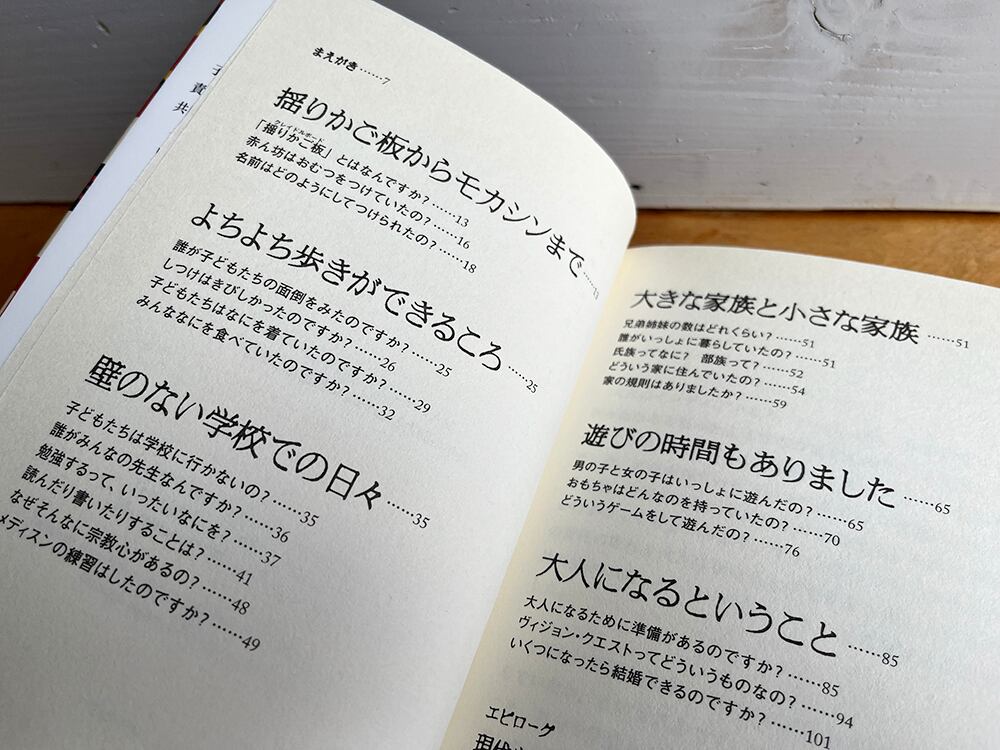 まえがき……7
揺りかご板からモカシンまで……13
「揺りかご板」とはなんですか？……13
クレイドルボード
赤ん坊はおむつをつけていたの？……16
名前はどのようにしてつけられたの？……18
よちよち歩きができるころ……25
誰が子どもたちの面倒をみたのですか？……25
しつけはきびしかったのですか？……26
子どもたちはなにを着ていたのですか？……29
みんなはなにを食べていたのですか？……32
壁のない学校での日々……35
子どもたちは学校に行かないの？……35
誰がみんなの先生なんですか？……36
勉強するって、いったいなにを？……37
読んだり書いたりすることは？……41
なぜそんなに宗教心があるの？……48
メディスンの練習はしたのですか？……49
大きな家族と小さな家族……51
兄弟姉妹の数はどれくらい？……51
誰がいっしょに暮らしていたの？……51
氏族ってなに？ 部族って？……52
どういう家に住んでいたの？……54
家の規則はありましたか？……59
遊びの時間もありました……65
男の子と女の子はいっしょに遊んだの？……65
おもちゃはどんなのを持っていたの？……70
どういうゲームをして遊んだの？……76
大人になるということ……85
大人になるために準備があるのですか？……85
ヴィジョン・クエストってどういうものなの？……94
いくつになったら結婚できるのですか？……101
エピローグ
現代
責
共